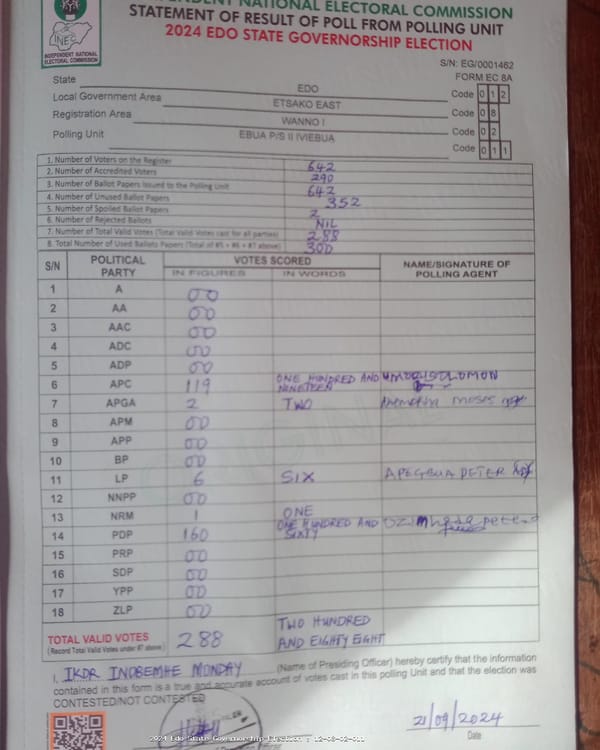 INDEPENDENT NATIONAL ELECTORAL COMMISSION
STATEMENT OF RESULT OF POLL FROM POLLING UNIT
2024 EDO STATE GOVERNORSHIP ELECTION
INEC
INDEPENDENT NATIONAL ELECTORAL COMMISSION
S/N: EG/0001462
FORM EC 8A
State EDO Code 0 1 2
Local Government Area ETSAKO EAST Code 0 8
Registration Area WANNO I Code 0 2
Polling Unit EBUA P/S II IVIEBUA Code 0 1 1
1. Number of Voters on the Register 642
2. Number of Accredited Voters 290
3. Number of Ballot Papers Issued to the Polling Unit 642
4. Number of Unused Ballot Papers 352
5. Number of Spoiled Ballot Papers 2
6. Number of Rejected Ballots NIL
7. Number of Total Valid Votes (Total Valid Votes cast for all parties) 288
8. Total Number of Used Ballots Papers (Total of #5 + #6 + #7 above) 300
S/N POLITICAL PARTY VOTES SCORED NAME/SIGNATURE OF POLLING AGENT
IN FIGURES IN WORDS
1 A 00
2 AA 00
3 AAC 00
4 ADC 00
5 ADP 00
6 APC 119 ONE HUNDRED AND NINETEEN SOLOMON
7 APGA 2 TWO MOSES
8 APM 00
9 APP 00
10 BP 00
11 LP 6 SIX APEGBUA PETER
12 NNPP 00
13 NRM 1 ONE
14 PDP 160 ONE HUNDRED AND SIXTY
15 PRP 00
16 SDP 00
17 YPP 00
18 ZLP 00
TOTAL VALID VOTES 288 TWO HUNDRED AND EIGHTY EIGHT
(Record Total Valid Votes under #7 above)
I, IKDR INOBEMHE MONDAY (Name of Presiding Officer) hereby certify that the information
contained in this form is a true and accurate account of votes cast in this polling Unit and that the election was
CONTESTED/NOT CONTESTED
21/09/2024
Date
2024 Edo State Governorship Election : 12-08-02-011